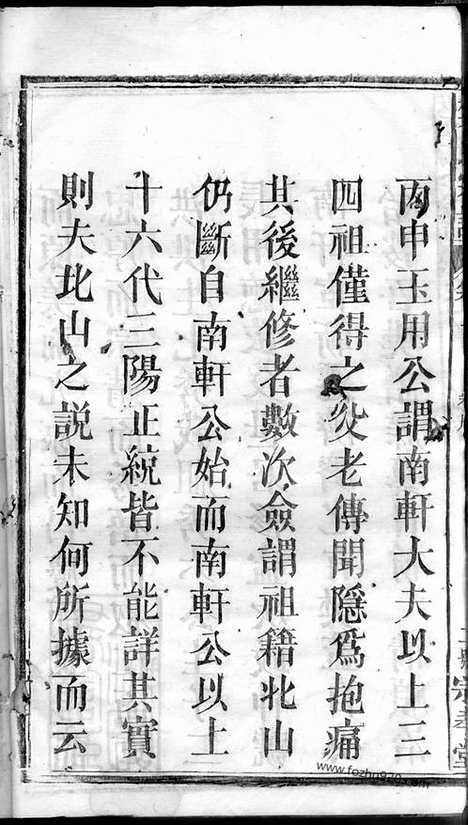 丙申玉用公謂南軒大夫以上三
四祖僅得之父老傳聞隱爲抱痛
其後繼修者數次僉謂祖籍北山
仍斷自南軒公始而南軒公以上
十六代三陽正統皆不能詳其實
則夫北山之説未知何所據而云